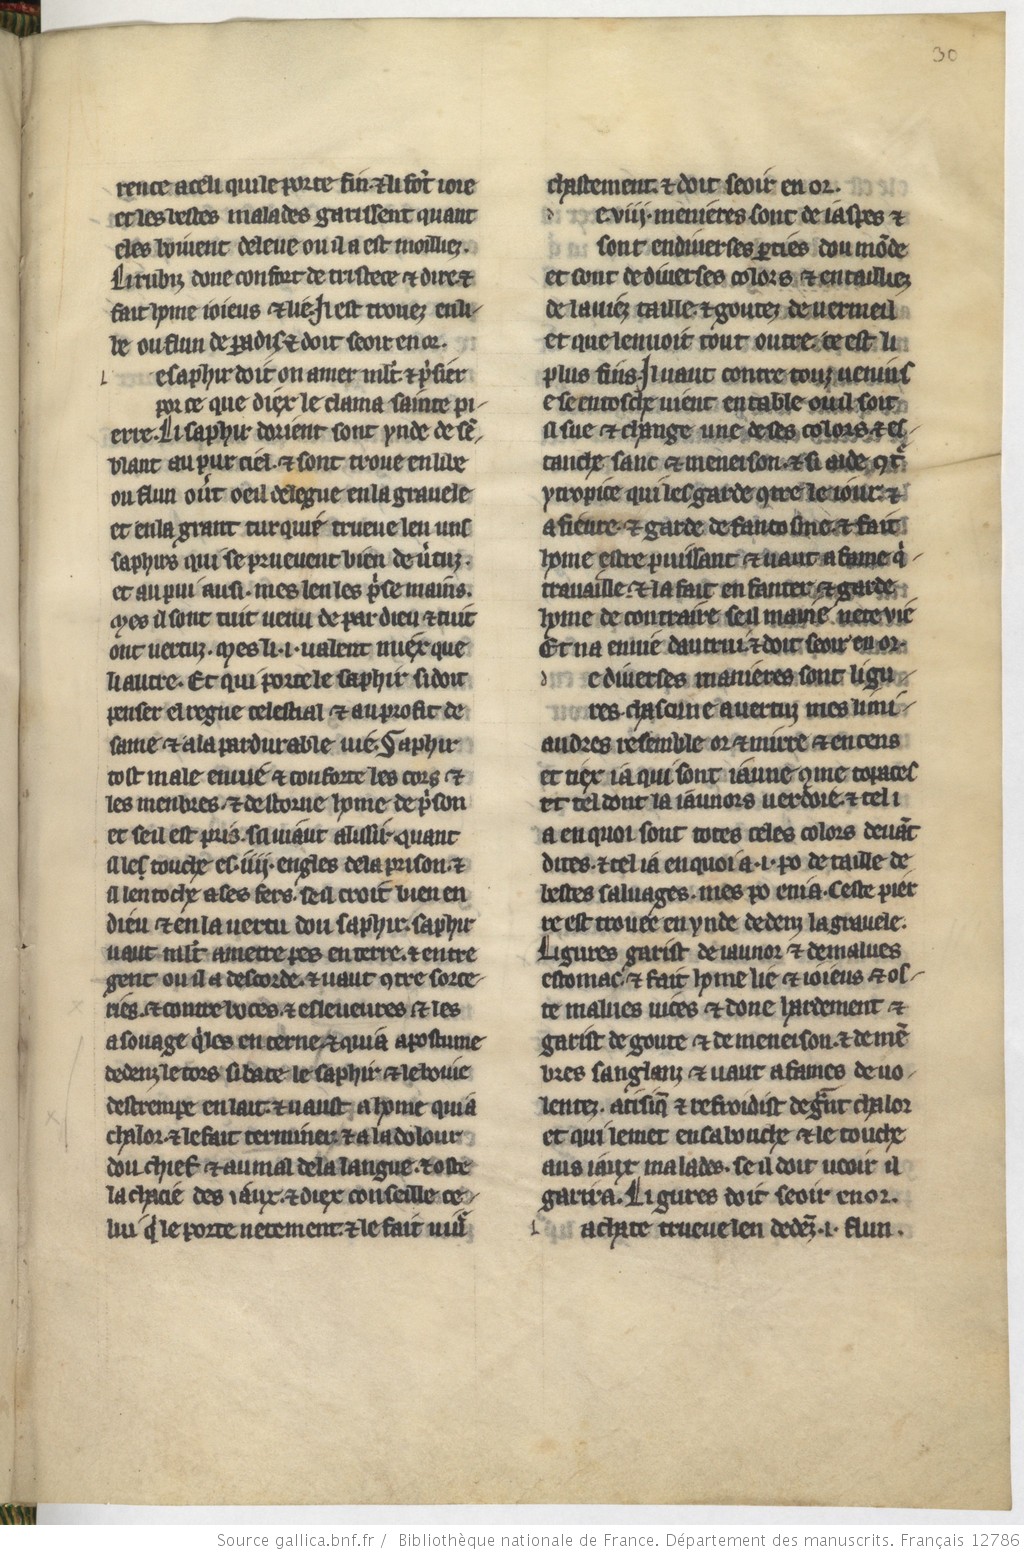 30
rence a celi qui le porte fin. ⁊ li fōt ioie
et les bestes malades garissent quant
eles boiuent deleue ou il a est moilliez.
Li rubiz done confort de tristece ⁊ dire ⁊
fait hōme ioieus ⁊ lié. Il est trouez en li-
be ou flun de ꝑadis ⁊ doit seoir en or.
l esaphir doit on amer ml't. ⁊ p'sier
por ce que diex le clama sainte pi-
erre. Li saphir dorient sont ynde de sē-
blant au pur ciel. ⁊ sont troue en libe
ou flun oūt oeil de legue en la grauele
et en la grant turquié trueue len uns
saphirs qui se prueuent bien de ūtuz.
et au pui ausi. mes len les p'se mains.
Mes il sont tuit uenu de par dieu ⁊ tuit
ont uertuz. Mes li .i. ualent miex que
li autre. Et qui porte le saphir si doit
penser el regne celestial ⁊ au profit de
same ⁊ a la pardurable uie. Saphir
tost male enuie ⁊ conforte les cors ⁊
les menbres. ⁊ destorne hōme de p'son
et se il est pris. sil uiaut alissir. quant
il les touche es .iiii. engles de la prison. ⁊
il len toche a ses fers. se il croit bien en
dieu ⁊ en la uertu dou saphir. saphir
uaut ml't a metre pes en terre. ⁊ entre
gent ou il a descorde. ⁊ uaut ꝯtre sorce-
ries. ⁊ contre boces. ⁊ esleueures ⁊ les
asouage q'les en terne. ⁊ qui a apostume
dedenz le cors si bate le saphir ⁊ le boiue
destrempe en lait. ⁊ uaust a hōme qui a
chalor. ⁊ le fait terminer. ⁊ a la dolour
dou chief ⁊ au mal de la langue. ⁊ oste
la chacie des iaux. ⁊ diex conseille ce-
lui q̄ le porte netement. ⁊ le fait uiur̄
chastement. ⁊ doit seoir en or.
d e .viii. menieres sont de iaspes ⁊
sont en diuerses ꝑties dou mōde
et sont de diuerses colors ⁊ en tailliez
de la uiez taille. ⁊ goutez de uermeil
et que len uoit tout outre. ce est li
plus fins. Il uaut contre touz uenins
e se entosche uient en table ou il soit
il sue ⁊ change une de ses colors. ⁊ es-
tanche sanc ⁊ meneison. ⁊ si aide ꝯt̄
ytropice qui les garde ꝯtre le iour. ⁊
a fieure. ⁊ garde de fantosme. ⁊ fait
hōme estre puissant ⁊ uaut a fame q'
trauaille. ⁊ la fait enfanter ⁊ garde
hōme de contraire se il maine nete uie
Et na enuie dautrui. ⁊ doit seoir en or.
d e diuerses manieres sont ligu-
res. chascune a uertuz mes li mi-
audres resemble or ⁊ mirre ⁊ encens
et tiex i a qui sont iaune ꝯme topaces
et tel dont la iaunors uerdoie. ⁊ tel i
a en quoi sont totes celes colors deuāt
dites. ⁊ tel i a en quoi a .i. po de taille de
bestes saluages. mes po en i a. Ceste pier
re est trouée en ynde dedenz la grauele.
Ligures garist de iaunor ⁊ de malues
estomac. ⁊ fait hōme lie ⁊ ioieus ⁊ os-
te malues uices ⁊ done hardement ⁊
garist de goute ⁊ de meneison. ⁊ de mē
bres sanglanz ⁊ uaut a fames de uo-
lentez. a tisiq̄ ⁊ refroidist de g̃nt chalor
et qui le met en sa bouche ⁊ le touche
aus iaux malades. se il doit ueoir il
garira. Ligures doit seoir en or.
l achate trueue len dedēz .i. flun.
Source gallica.bnf.fr / Bibliothèque nationale de France. Département des manuscrits. Français 12786